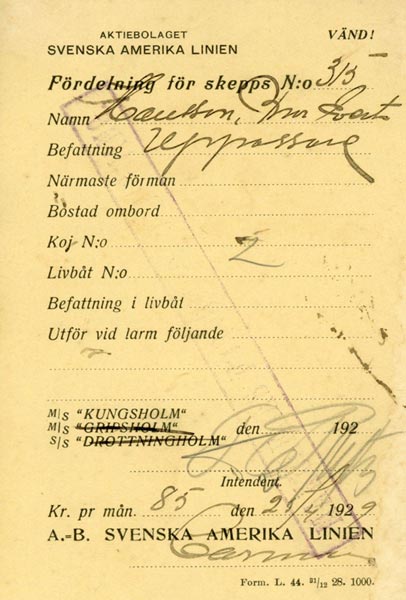 AKTIEBOLAGET VÄND!
SVENSKA AMERIKA LINIEN
Fördelning för skepps N:o 315
Namn
Befattning Uppassare
Närmaste förman
Bostad ombord
Koj N:o 2
Livbåt N:o
Befattning i livbåt
Utför vid larm följande
M/S "KUNGSHOLM"
M/S "GRIPSHOLM" den 192
S/S "DROTTNINGHOLM"
Intendent.
Kr. pr mån. 85 den 29/4 1929
A.-B. SVENSKA AMERIKA LINIEN
Form. L. 44. 31/12 28. 1000.